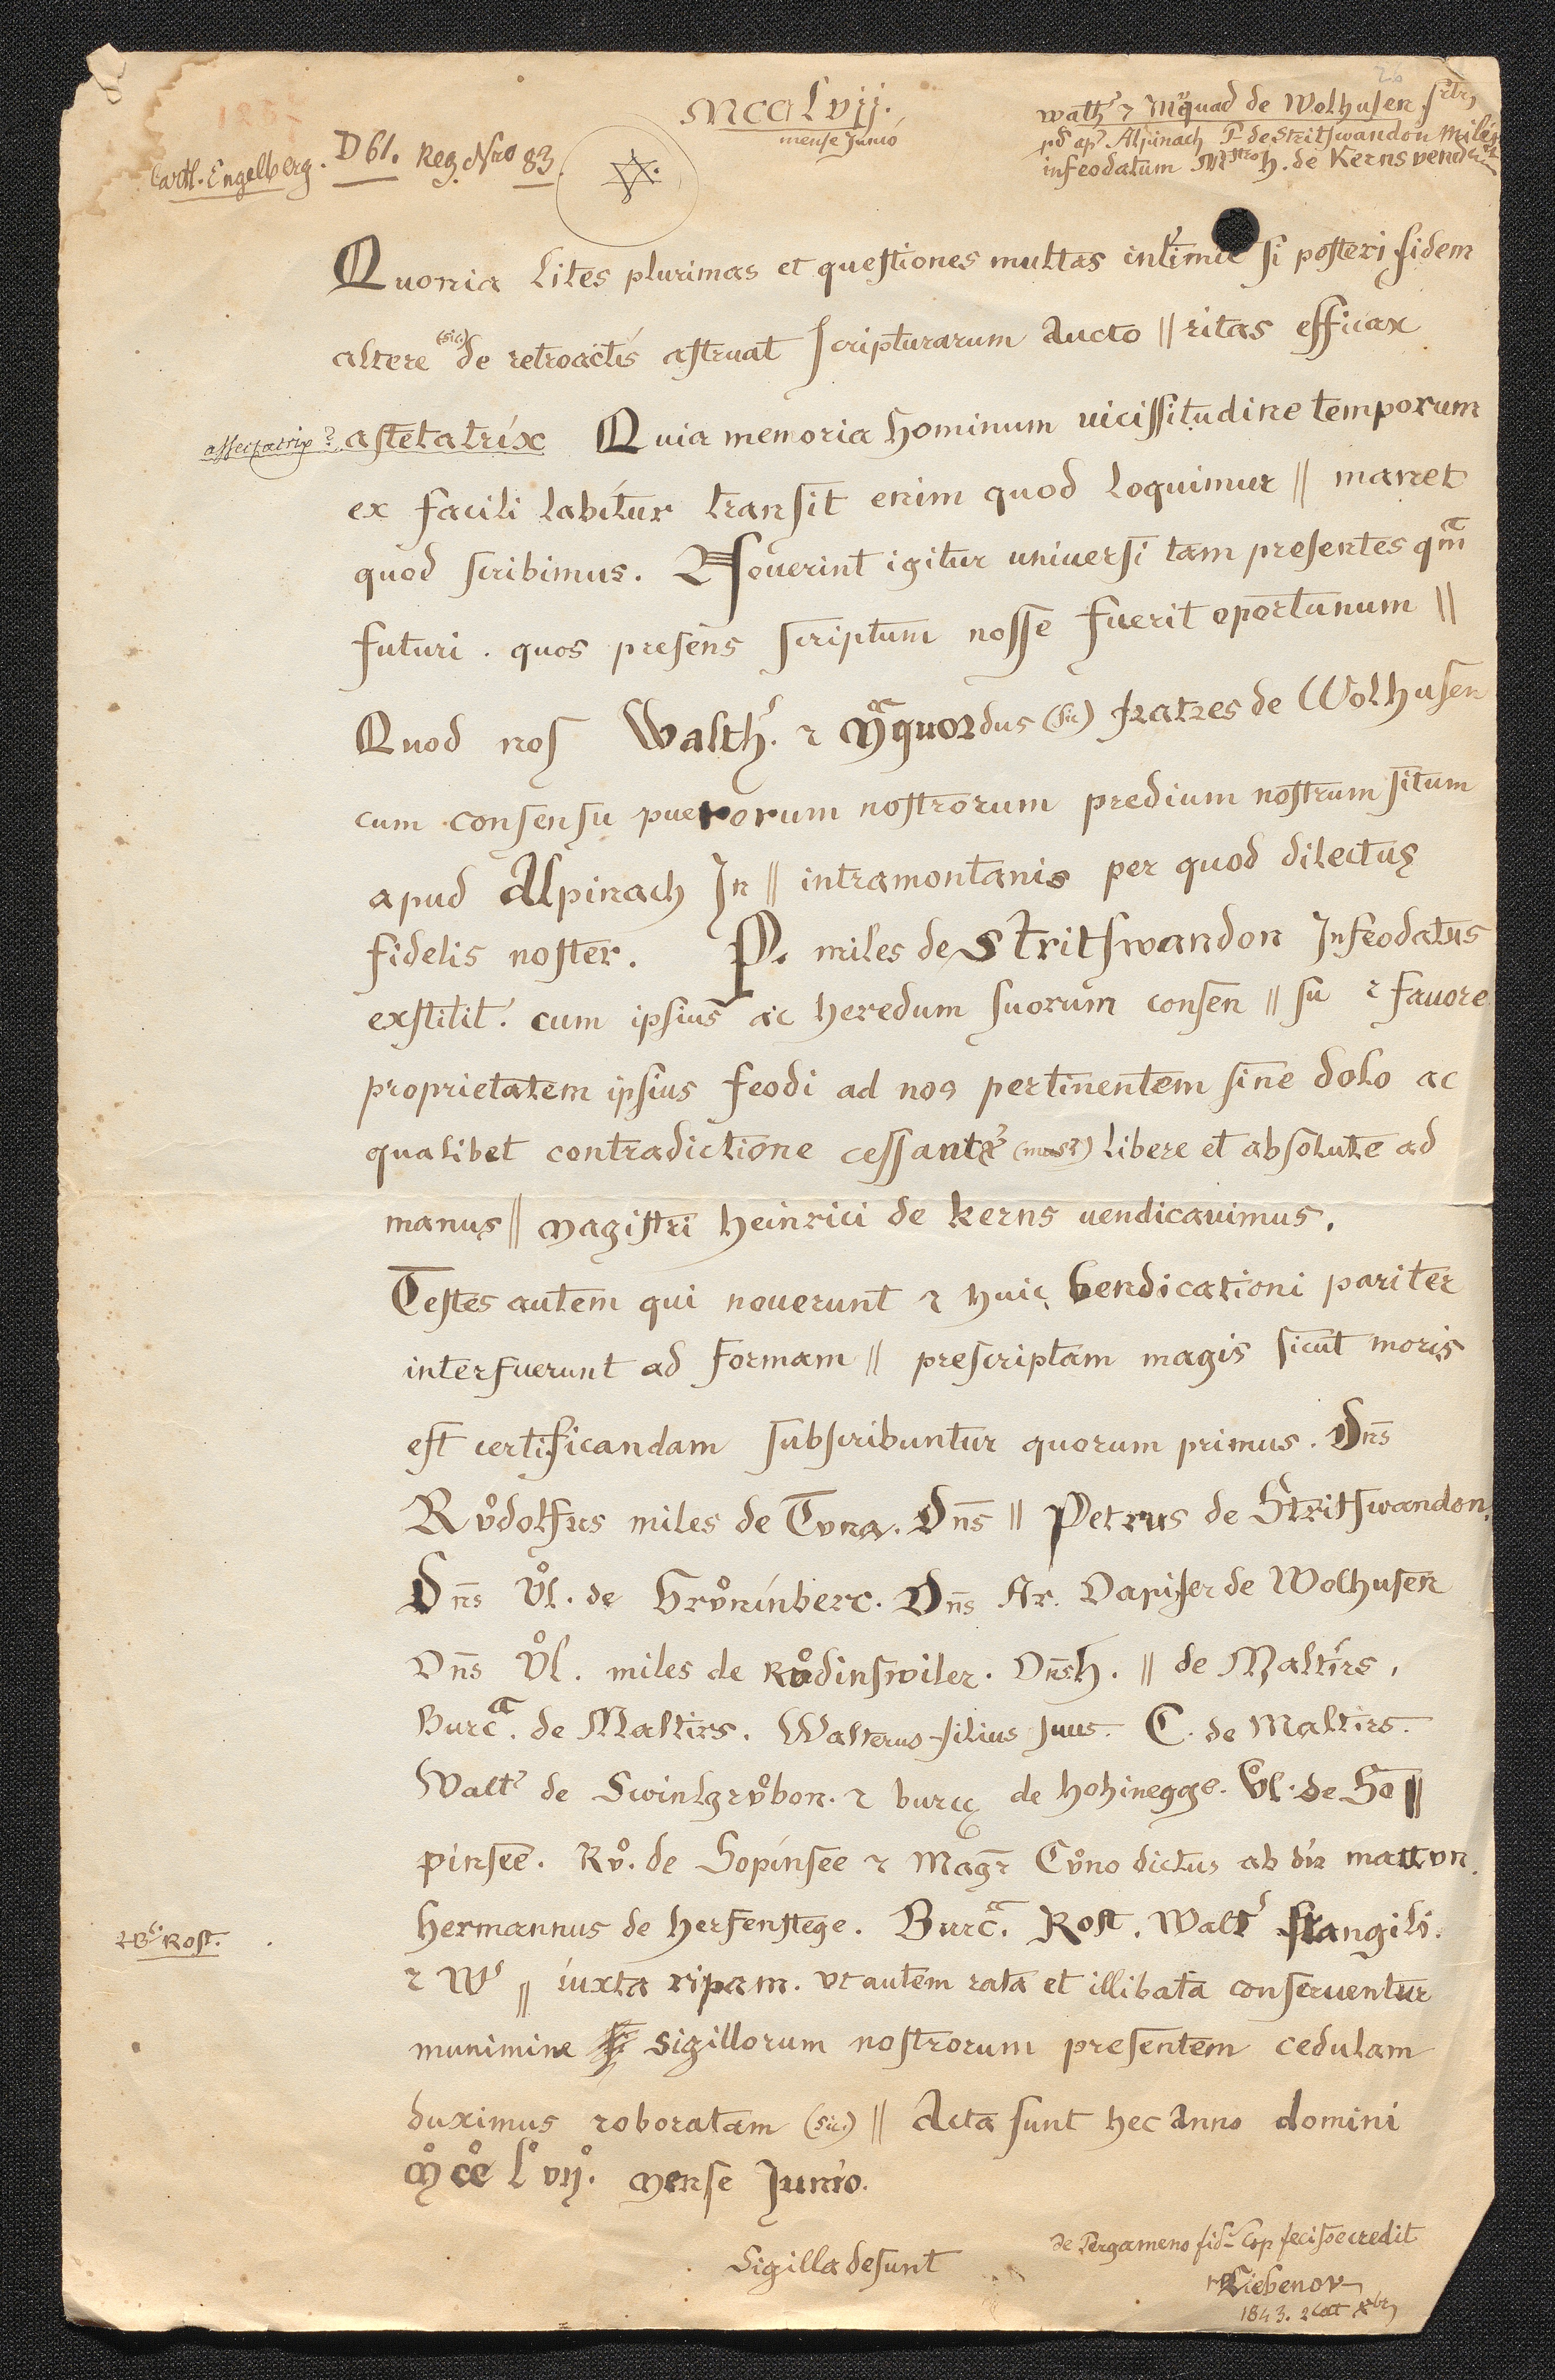 26
1257
MCCLvij.
mense Junio
Carth. Engelberg. D 61. Reg. Nro 83.
walth' ⁊ Mquad de Wolhusen frtrs
pd ap' Alpinach P. de Stritswandon Miles
infeodatum Mgstro H. de Kerns vend
Quonia lites plurimas et questiones multas intimit si posteri fidem
altere (sic) de retroactis astruat scripturarum aucto || ritas efficax
assectatrix? astetatrix Quia memoria hominum uicissitudine temporum
ex facili labitur transit enim quod loquimur || manet
quod scribimus. Nouerint igitur universi tam presentes qm
futuri. quos presens scriptum nosse fuerit oportunum ||
Quod nos Walth'. ⁊ Mquordus (sic) fratres de Wolhusen
cum consensu puerorum nostrorum predium nostrum situm
apud Alpinach In || intramontanis per quod dilectus
fidelis noster. P. miles de Stritswandon Infeodatus
exstitit. cum ipsius ac heredum suorum consen || su ⁊ fauore
proprietatem ipsius feodi ad nos pertinentem sine dolo ac
qualibet contradictione cessante libere et absolute ad
manus || Magistri Heinrici de kerns uendicauimus.
Testes autem qui nouerunt ⁊ huic vendicationi pariter
interfuerunt ad formam || prescriptam magis sicut moris
est certificandam subscribuntur quorum primus. Dns
Rvͦdolfus miles de Tvna. Dns || Petrus de Stritswandon.
Dns Vͦl. de Grvͦninberc. Dns Ar. Dapifer de Wolhusen
Dns Vͦl. miles de Rvͦdinswiler. Dns h. || de Maltirs.
Burcͣ. de Maltirs. Walterus filius suus. C. de Maltirs.
Walt' de Swinlgrvͦbon. ⁊ burcͣ de hohinegge. Vͦl. de So ||
pinsee. Rvͦ. de Sopinsee ⁊ Magr Cvͦno dictus ab dir mattvn.
⁊ B' Rost.
hermannus de herfenstege. Burcͣ. Rost. Walt' stangili.
⁊ W' || iuxta ripam. vt autem rata et illibata conseruentur
munimine sigillorum nostrorum presentem cedulam
duximus roboratam (sic) || Acta sunt hec Anno domini
Mͦ CCͦ Lͦ vijͦ. Mense Junio.
Sigilla desunt
de Pergameno fid. Cop fecisse credit
Liebenov
1843. 2 Xbr